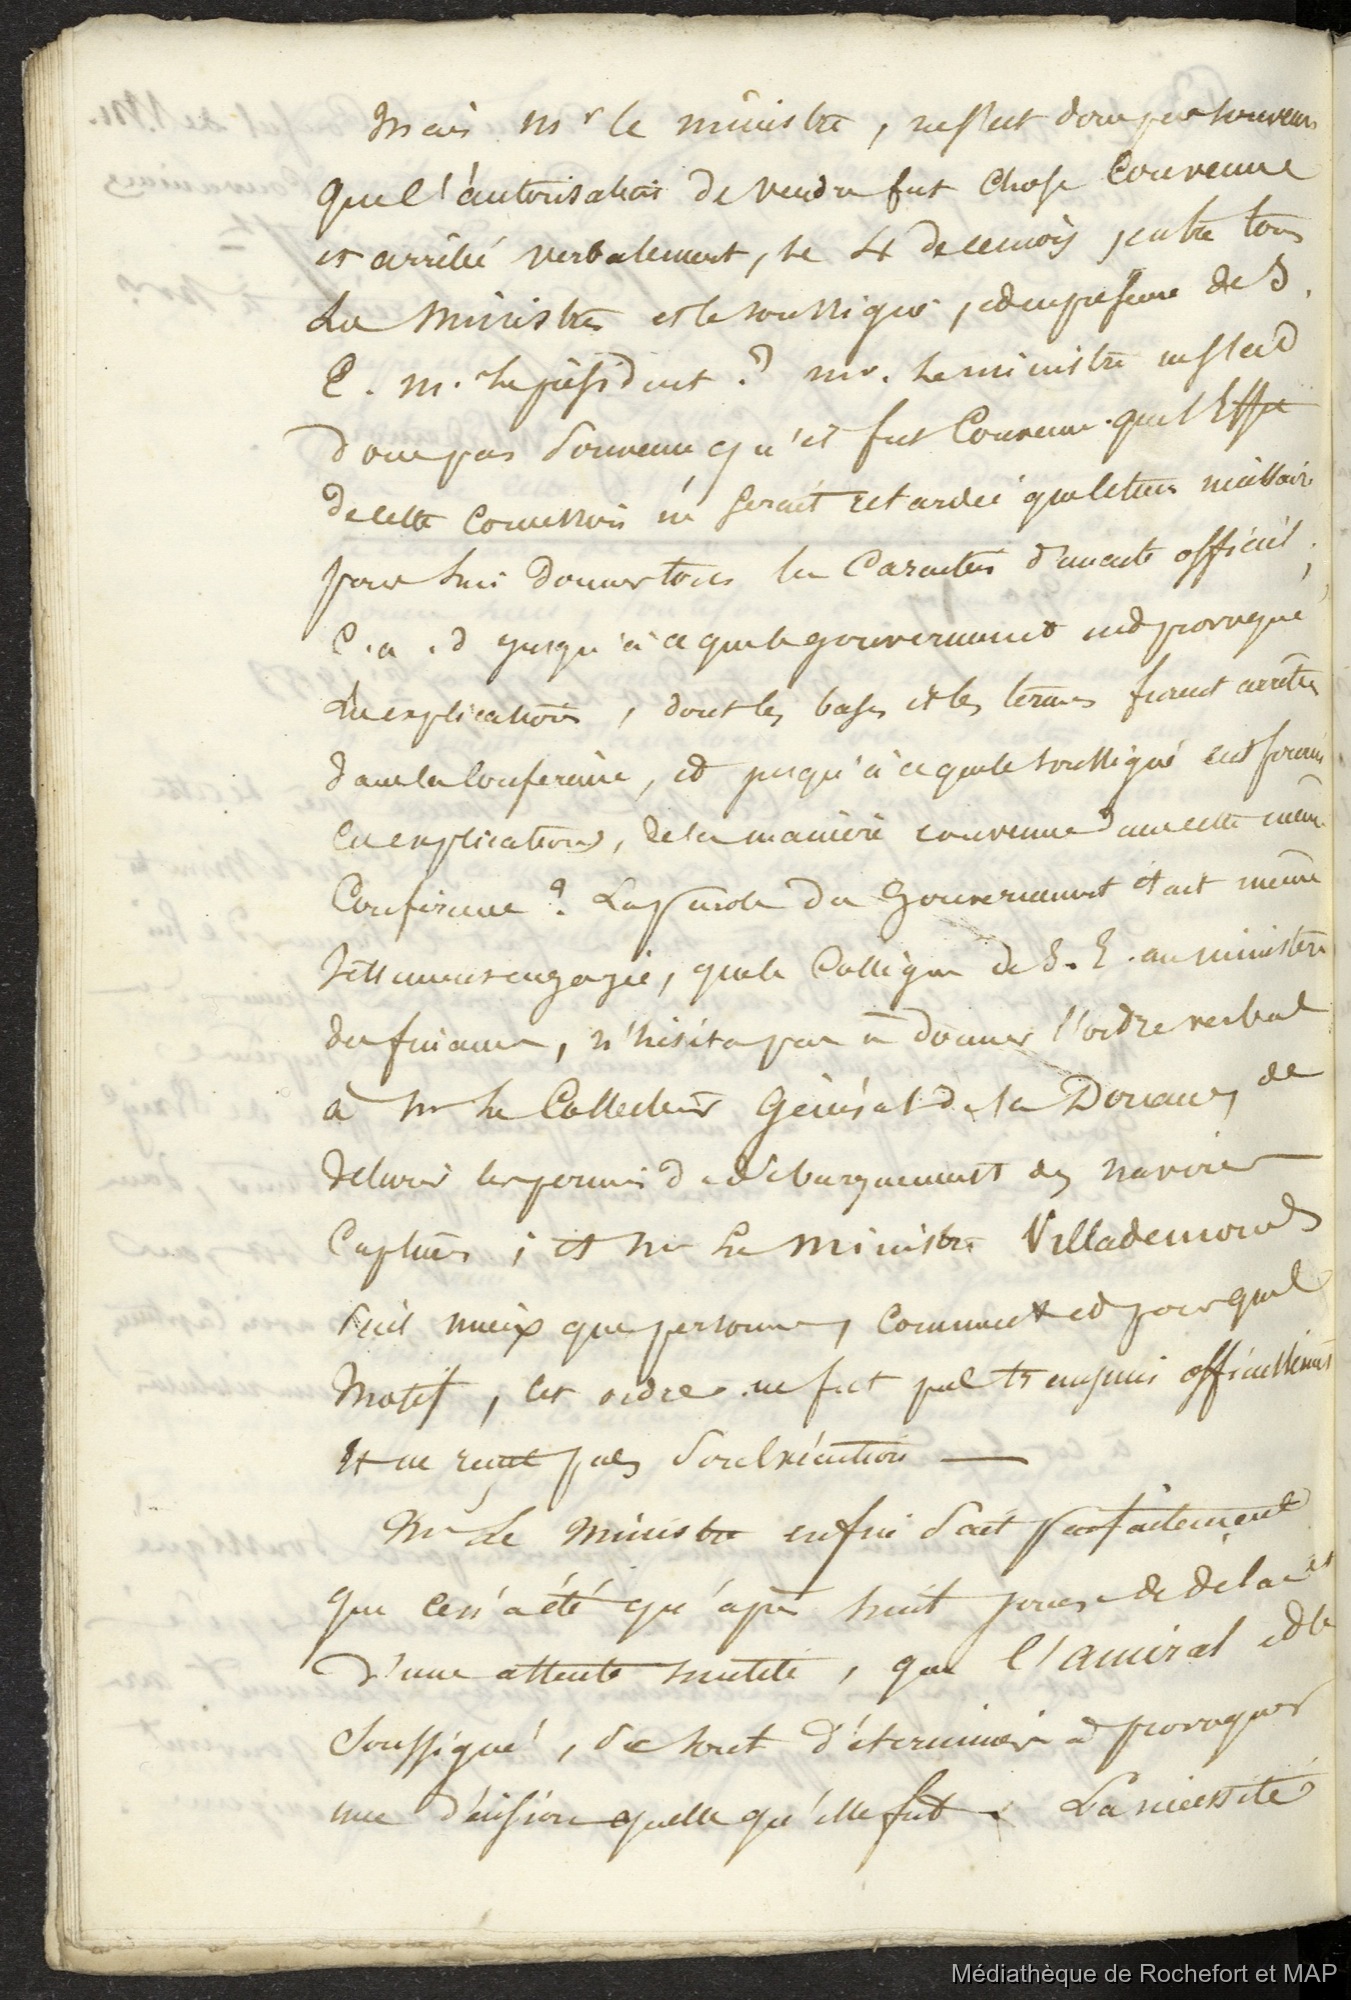 Mais Mr le ministre, ne s'est donc pas souvenu
que l'autorisation de vendre fut chose convenue
et arrêtée verbalement, le 4 de ce mois, entre tous
les Ministres et le soussigné, et en présence de S.
E. M. le président ? Mr. le ministre ne s'est
donc pas souvenu qu'il fut convenu que l'Effet
de cette concession ne serait retardé que le tems nécessaire
pour lui donner tous les Caractères d'un acte officiel,
C. a. d jusqu'à ce que le gouvernement eut provoqué
des explications, dont les bases et les termes furent arrêtés
dans la Conférence, et jusqu'à ce que le soussigné eut fourni
ces explications, de la manière convenue dans cette même
Conférence ? La parole du Gouvernement était même
tellement engagée, que le Collègue de S. E. au ministère
des finances, n'hésita pas à donner l'ordre verbal
à Mr le Collecteur Général de la Douane, de
délivrer les permis de débarquement des navires
Capturés ; et Mr le Ministre Villademoros
sait mieux que personne, comment et pour quel
Motif, cet ordre ne fut pas transmis officiellement
et ne reçut pas son Exécution —
Mr Le Ministre enfin sait parfaitement
que ce n'a été qu'après huit jours de délai et
d'une attente inutile, que l'amiral et le
Soussigné, se sont déterminés à provoquer
une décision quelle qu'elle fut. La nécessité
Médiathèque de Rochefort et MAP